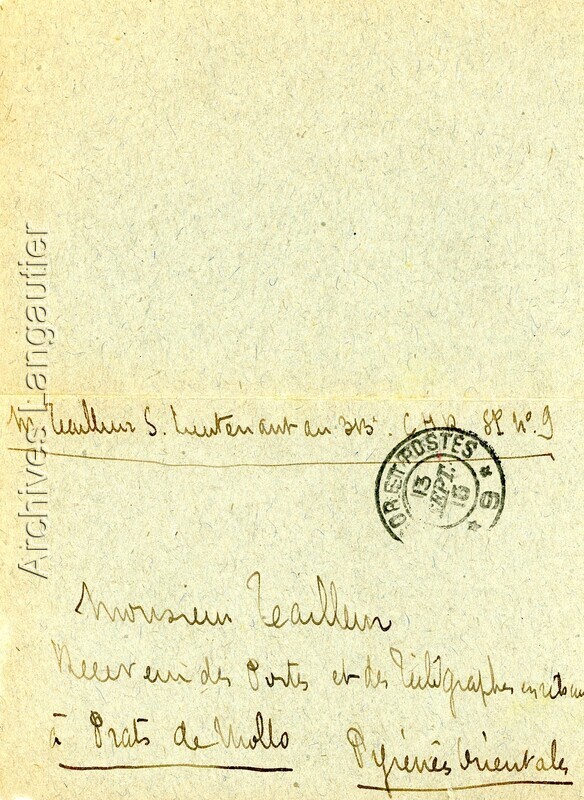 M. Teailleur S. Lieutenant au 313e. C.H.R. SP. No. 9
TRESOR ET POSTES * 9 *
13
SEPT.
16
Monsieur Teailleur
Receveur des Postes et des Télégraphes en retraite
à Prats de Mollo Pyrénées Orientales
Archives Langautier